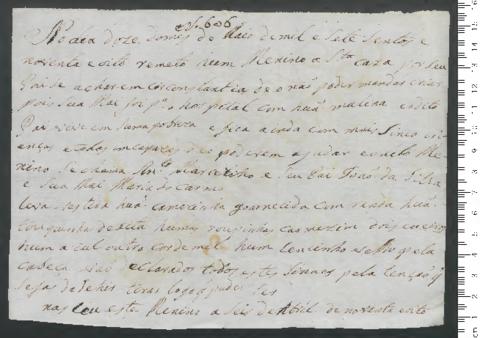 No dia doze do mes de Maio de mil e sete sentos e
noventa e oito remeto hum Menino a Sta Caza por seu
Pai se achar em circonstantia de o não poder mandar criar
pois sua Mai foi pa o hospital com huã malina e o dito
Pai vive em suma pobreza e fica ainda com mais sinco cri
anças e todos incapazes de o poderem ajudar e o dito Me
nino se chama Anto Marcelino e seu Pai João da Silva
e sua Mai Maria do Carmo
leva vestido huã camizinha goarnecida com renda huã
touquinha de
hum azul outro cor de mel hum lencinho
cabeça vão declarados todos estes sinaes pela tenção q
seja de lhes tirar logo q puder ser
nasceu este Menino a seis de Abril de noventa e oito